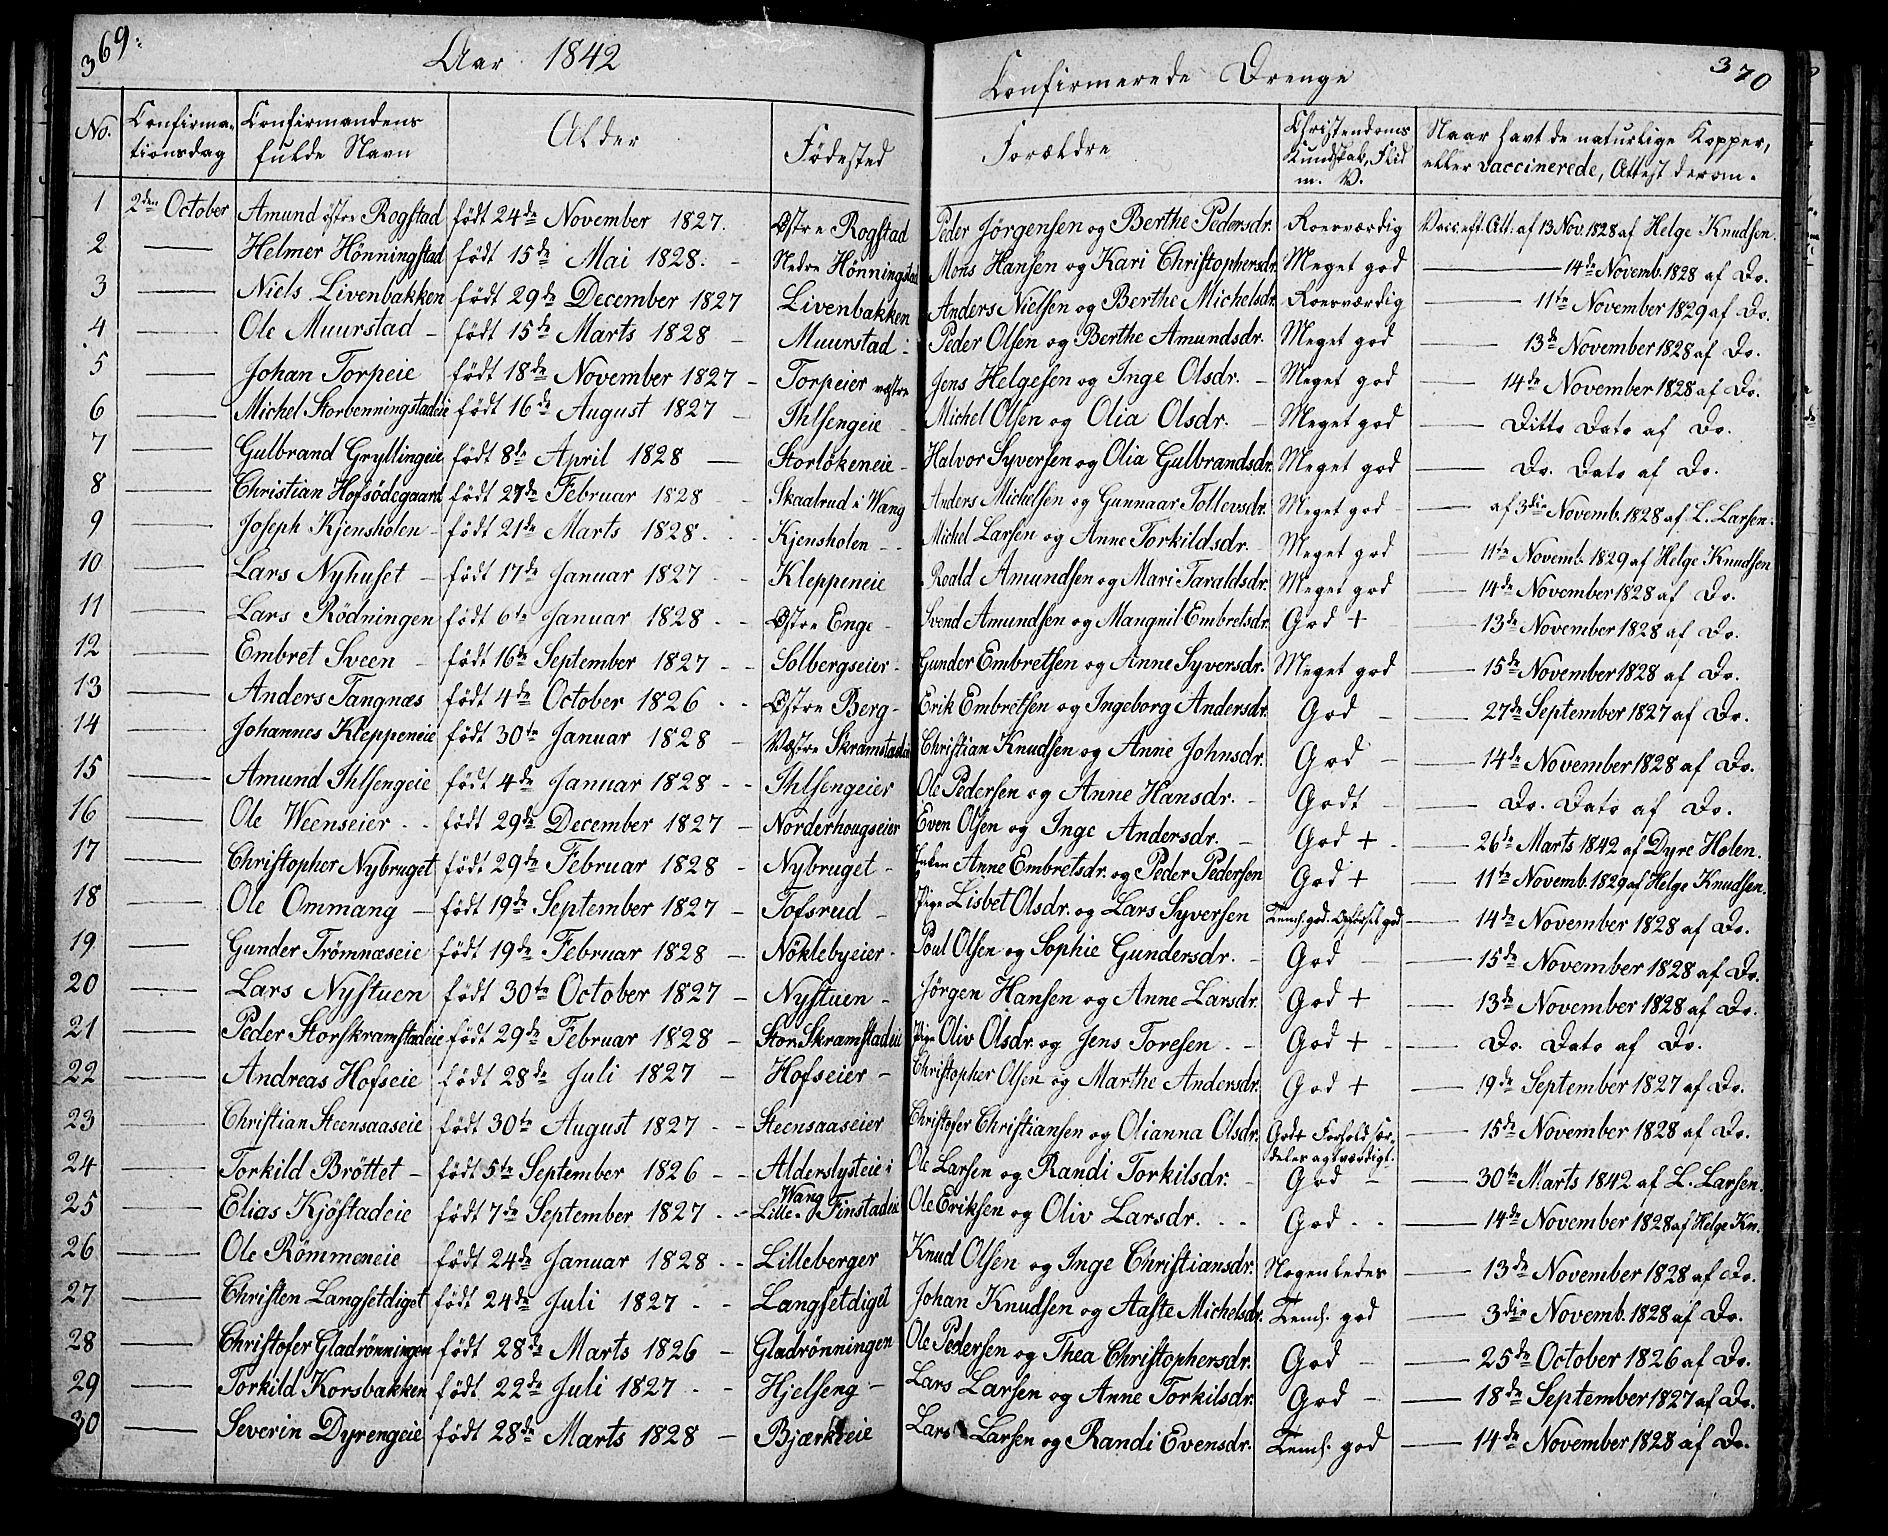 369.
Aar 1842
Confirmerede Drenge
370
No. Confirma- Confirmandens Alder Fødested Forældre Christendoms Naar havt de naturlige Kopper,
tionsdag fulde Navn Kundskab, Flid eller vaccinerede, Attest derom.
m. V.
1 2den October Amund østre Rogstad født 24de November 1827. Østre Rogstad Peder Jörgensen og Berthe Pedersdr. Roesværdig Vacc. eft. Att. af 13 Nov. 1828 af Helge Knudsen.
2 — Helmer Hönningstad født 15de Mai 1828. Nedre Hönningstad Mons Hansen og Kari Christophersdr. Meget god — 14de Novemb. 1828 af Do.
3 — Niels Livenbakken født 29de December 1827 Livenbakken Anders Nielsen og Berthe Michelsdr. Roesværdig — 11te November 1829 af Do.
4 — Ole Muurstad født 15de Marts 1828 Muurstad Peder Olsen og Berthe Amundsdr. Meget god — 13de November 1828 af Do.
5 — Johan Torpeie født 18de November 1827 Torpeier vestre Jens Helgesen og Inge Olsdr. Meget god — 14de November 1828 af Do.
6 — Michel Storbenningstadeie født 16de August 1827 Ihlsengeie Michel Olsen og Olia Olsdr. Meget god — Ditto Dato af Do.
7 — Gulbrand Gryllingeie født 8de April 1828 Storlökeneie Halvor Syversen og Olia Gulbrandsdr. Meget god — Do. Dato af Do.
8 — Christian Hofsödegaard født 27de Februar 1828 Skaalrud i Wang Anders Michelsen og Gunnaar Tollevsdr. Meget god — af 3die Novemb. 1828 af L. Larsen.
9 — Joseph Kjensholen født 21de Marts 1828. Kjensholen Michel Larsen og Anne Torkildsdr. Meget god — 11te Novemb. 1829 af Helge Knudsen
10 — Lars Nyhuset født 17de Januar 1827 Kleppeneie Roald Amundsen og Mari Taraldsdr. Meget god — 14de November 1828 af Do.
11 — Lars Rödningen født 6te Januar 1828 Østre Enge Svend Amundsen og Mangnil Embretsdr. God + — 13de November 1828 af Do.
12 — Embret Sveen født 16de September 1827 Solbergseier Gunder Embretsen og Anne Syversdr. Meget god — 15de November 1828 af Do.
13 — Anders Tangnæs født 4de October 1826 Østre Berg Erik Embretsen og Ingeborg Andersdr. God — 27de September 1827 af Do.
14 — Johannes Kleppeneie født 30te Januar 1828 Vestre Skramstadeie Christian Knudsen og Anne Johnsdr. God — 14de November 1828 af Do.
15 — Amund Ihlsengeie født 4de Januar 1828 Ihlsengeier Ole Pedersen og Anne Hansdr. Godt — Do. Dato af Do.
16 — Ole Weenseier født 29de December 1827 Norderhougseier Even Olsen og Inge Andersdr. God + — 26de Marts 1842 af Dyre Holen.
17 — Christopher Nybruget født 29de Februar 1828 Nybruget Enken Anne Embretsdr. og Peder Pedersen God + — 11te Novemb. 1829 af Helge Knudsen.
18 — Ole Ommang født 19de September 1827 Tofsrud Pige Lisbet Olsdr. og Lars Syversen Tems. god. Opførsel god — 14de November 1828 af Do.
19 — Gunder Trömnæseie født 19de Februar 1828 Nöklebyeier Poul Olsen og Sophie Gundersdr. God — 15de November 1828 af Do.
20 — Lars Nystuen født 30te October 1827 Nystuen Jörgen Hansen og Anne Larsdr. God + — 13de November 1828 af Do.
21 — Peder Storskramstadeie født 29de Februar 1828 Stor Skramstadeie Pige Oliv Olsdr. og Jens Toresen God + — Do. Dato af Do.
22 — Andreas Hofseie født 28de Juli 1827 Hofseier Christopher Olsen og Marthe Andersdr. God + — 19de September 1827 af Do.
23 — Christian Steensaaseie født 30te August 1827 Steensaaseier Christofer Christiansen og Olianna Olsdr. God + Forhold sær- — 15de November 1828 af Do.
deles agtværdigt.
24 — Torkild Bröttet født 5te September 1826 Alderslysteie i Ole Larsen og Randi Torkilsdr. God — 30te Marts 1842 af L. Larsen.
Wang
25 — Elias Kjöstadeie født 7de September 1827 Lille Finstadeie Ole Eriksen og Oliv Larsdr. God — 14de November 1828 af Helge Kn.
26 — Ole Römmeneie født 24de Januar 1828 Lilleberger Knud Olsen og Inge Christiansdr. Nogenledes — 13de November 1828 af Do.
27 — Christen Langsetdiget født 24de Juli 1827 Langsetdiget Johan Knudsen og Aaste Michelsdr. Tems. god — 3die Novemb. 1828 af Do.
28 — Christofer Gladrönningen født 28de Marts 1826 Gladrönningen Ole Pedersen og Thea Christophersdr. God — 25de October 1826 af Do.
29 — Torkild Korsbakken født 22de Juli 1827 Hjelseng Lars Larsen og Anne Torkilsdr. God — 18de September 1827 af Do.
30 — Severin Dyrengeie født 28de Marts 1828 Bjærkeeie Lars Larsen og Randi Evensdr. Tems. god — 14de November 1828 af Do.